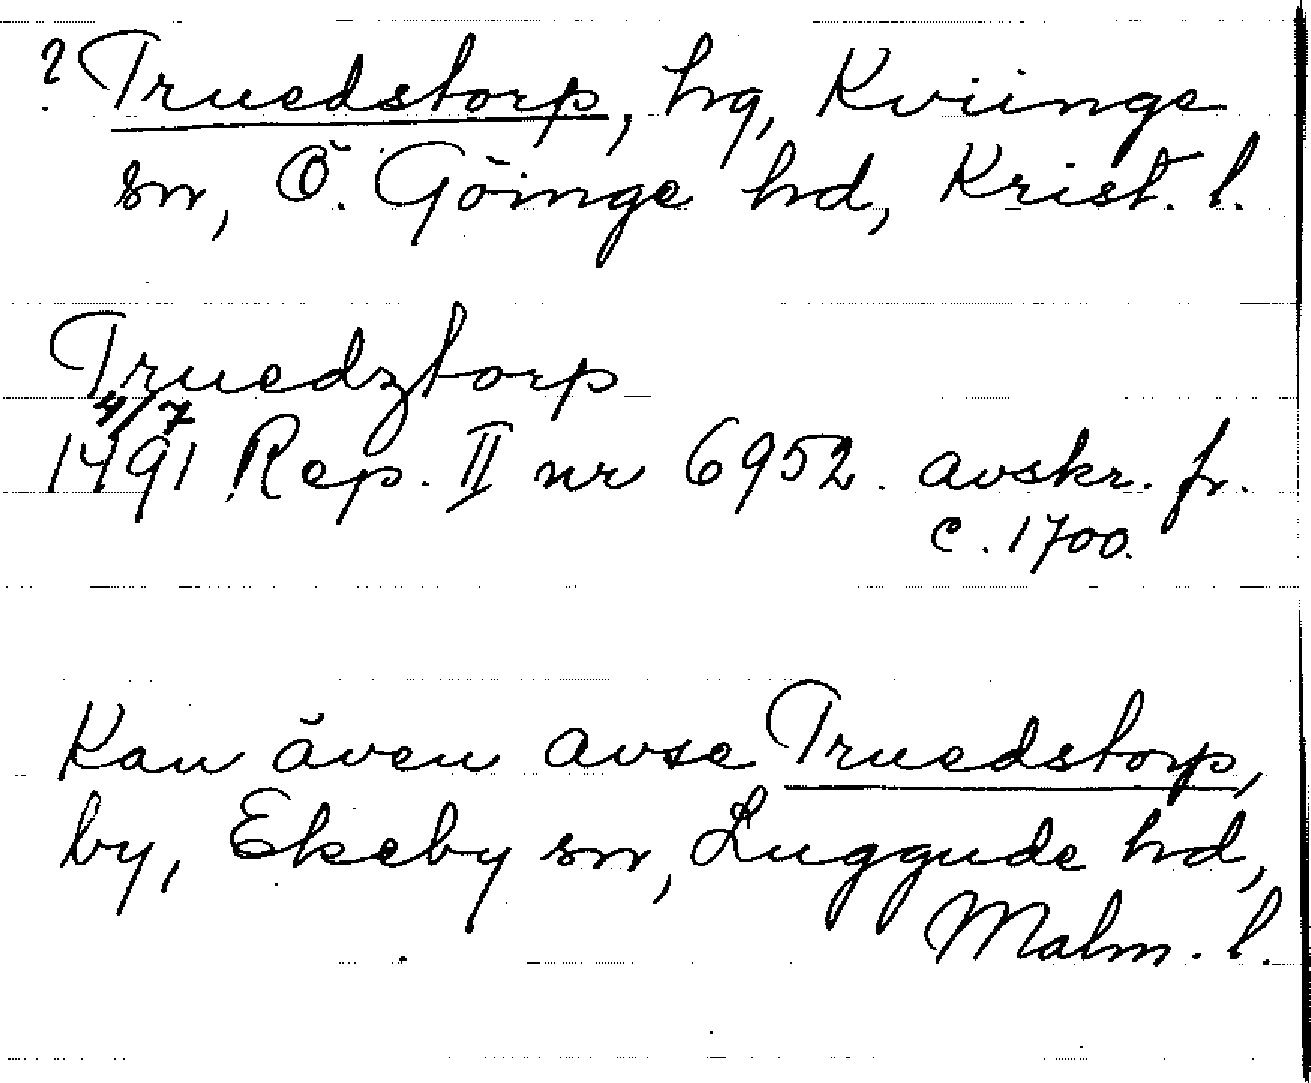 ? Truedstorp, hg, Kviinge
sn, Ö. Göinge hd, Krist. l.
Truedztorp
4/7
1491 Rep. II nr 6952. avskr. fr.
c. 1700.
Kan även avse Truedstorp,
by, Ekeby sn, Luggude hd,
Malm. l.